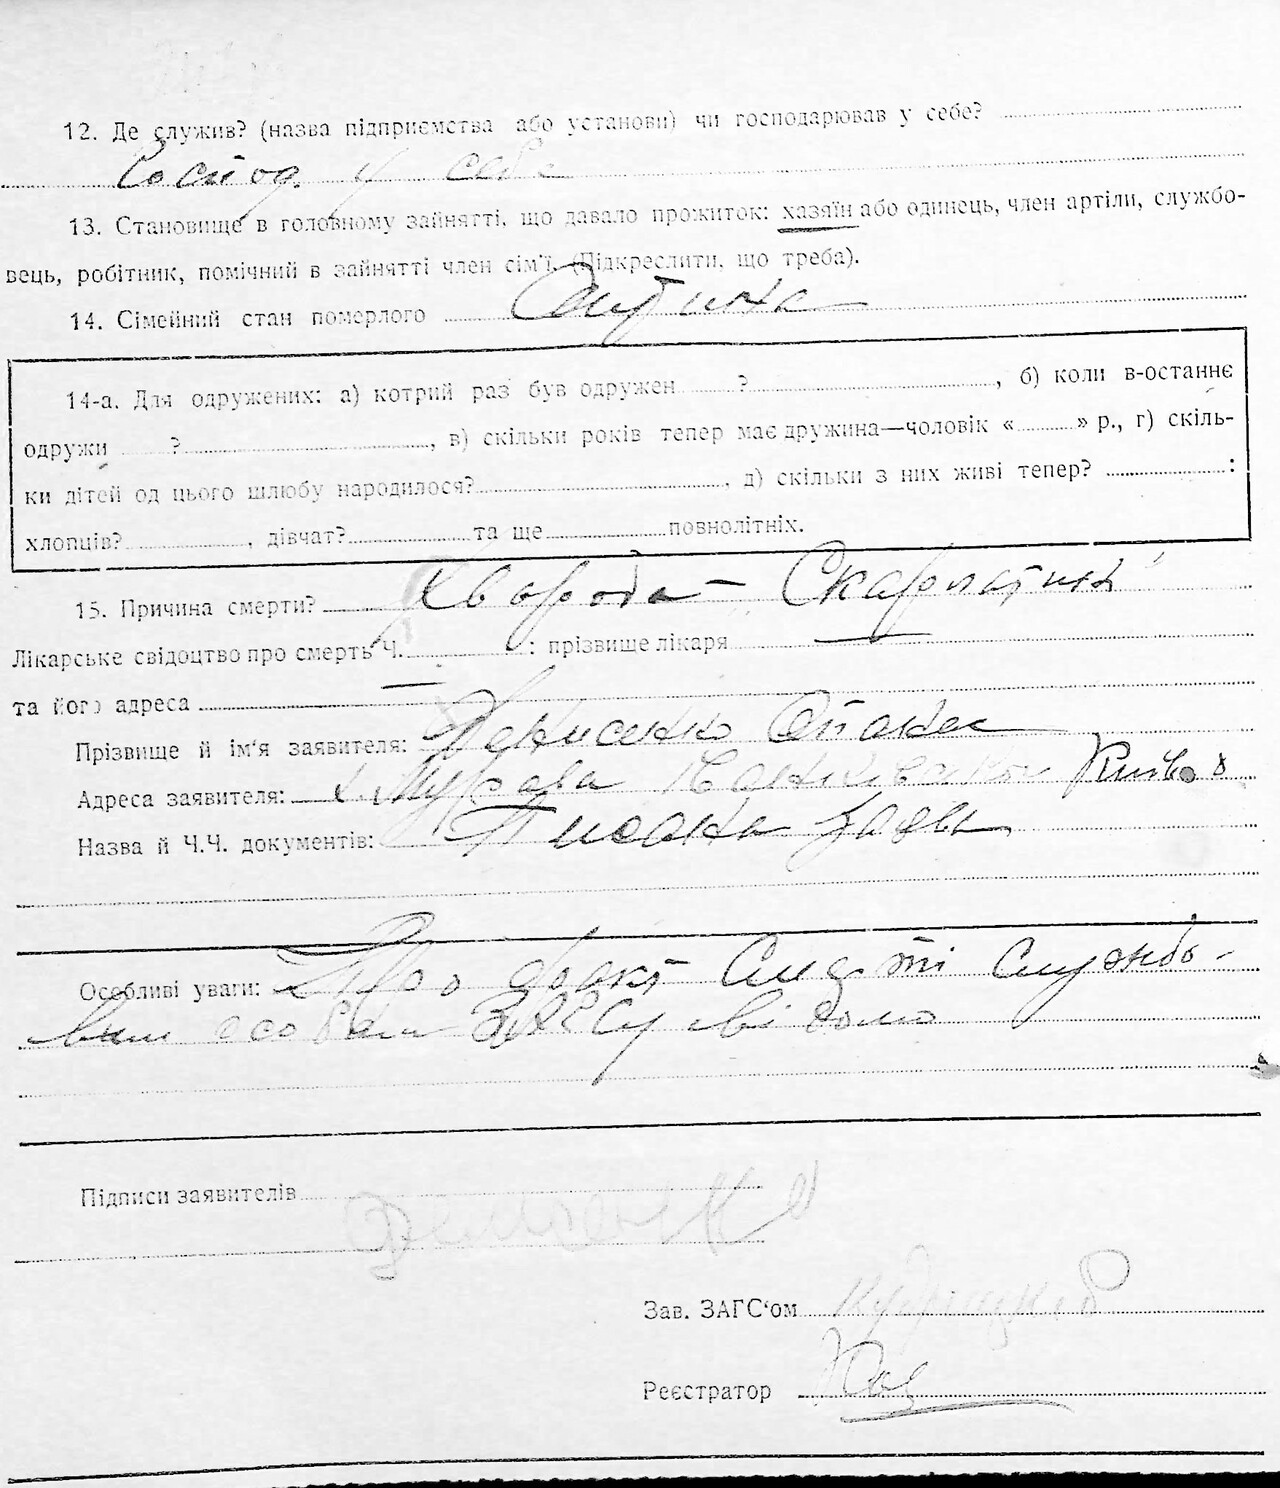 12. Де служив? (назва підприємства або установи) чи господарював у себе?
Господ. у себе
13. Становище в головному зайнятті, що давало прожиток: хазяїн або одинець, член артіли, службо-
вець, робітник, помічний в зайнятті член сім'ї. (Підкреслити, що треба).
14. Сімейний стан померлого Дитина
14-а. Для одружених: а) котрий раз був одружен ?, б) коли в-останнє
одружи ?, в) скільки років тепер має дружина—чоловік « » р., г) скіль-
ки дітей од цього шлюбу народилося?, д) скільки з них живі тепер? :
хлопців? , дівчат? та ще повнолітніх.
15. Причина смерти? Хвороба – Скарлатина
Лікарське свідоцтво про смерть Ч. : прізвище лікаря —
та його адреса —
Прізвище й ім'я заявителя: Денисенко
Адреса заявителя:
Назва й Ч.Ч. документів: заява
Особливі уваги: Про факт смерті службо-
вим особам ЗАГСу відомо
Підписи заявителів Денисенко
Зав. ЗАГС'ом
Реєстратор